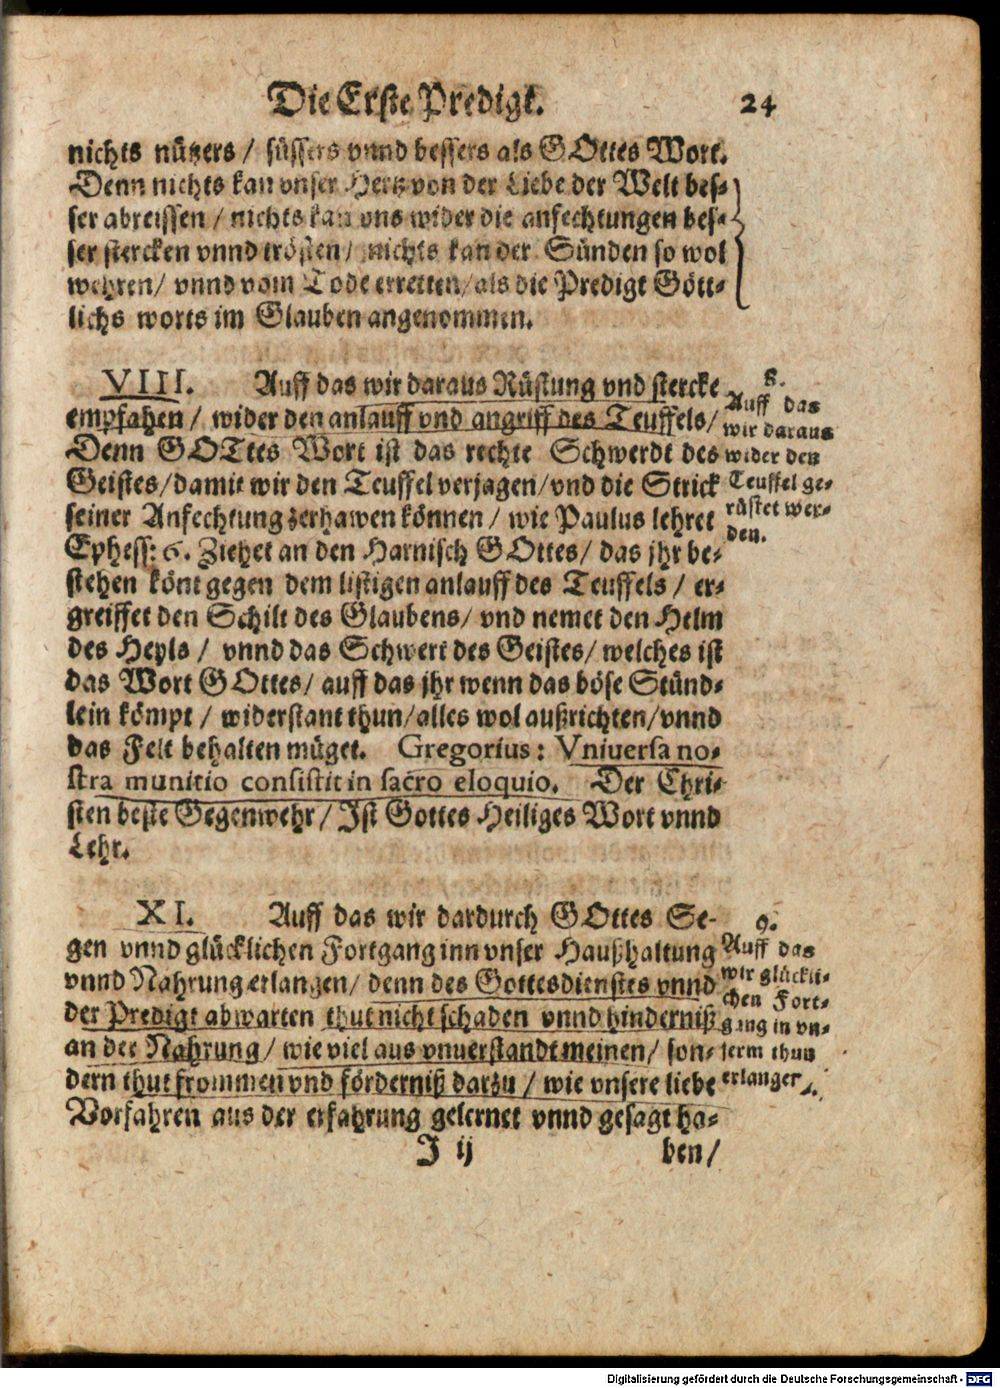 Die Erste Predigt. 24
nichts nützers / süssers vnnd bessers als GOttes Wort.
Denn nichts kan vnser Hertz von der Liebe der Welt bes-
ser abreissen / nichts kan vns wider die anfechtungen bes-
ser stercken vnnd trösten / nichts kan der Sünden so wol
wehren / vnnd vom Tode erretten / als die Predigt Gött-
lichs worts im Glauben angenommen.
VIII. Auff das wir daraus Rüstung vnd stercke
empfahen / wider den anlauff vnd angriff des Teuffels /
Denn GOTtes Wort ist das rechte Schwerdt des
Geistes / damit wir den Teuffel verjagen / vnd die Strick
seiner Anfechtung zerhawen können / wie Paulus lehret
Ephess: 6. Ziehet an den Harnisch GOttes / das jhr be-
stehen könt gegen dem listigen anlauff des Teuffels / er-
greiffet den Schilt des Glaubens / vnd nemet den Helm
des Heyls / vnnd das Schwert des Geistes / welches ist
das Wort GOttes / auff das jhr wenn das böse Stünd-
lein kömpt / widerstant thun / alles wol außrichten / vnnd
das Felt behalten müget. Gregorius: Vniuersa no-
stra munitio consistit in sacro eloquio. Der Chri-
sten beste Gegenwehr / Ist Gottes Heiliges Wort vnnd
Lehr.
8.
Auff das
wir daraus
wider den
Teuffel ge-
rüstet wer-
den.
XI. Auff das wir dardurch GOttes Se-
gen vnnd glücklichen Fortgang inn vnser Haußhaltung
vnnd Nahrung erlangen / denn des Gottesdienstes vnnd
der Predigt abwarten thut nicht schaden vnnd hinderniß
an der Nahrung / wie viel aus vnuerstandt meinen / son-
dern thut frommen vnd förderniß darzu / wie vnsere liebe
Vorfahren aus der erfahrung gelernet vnnd gesagt ha-
9.
Auff das
wir glückli-
chen Fort-
gang in vn-
serm thun
erlangen.
J ij ben /
Digitalisierung gefördert durch die Deutsche Forschungsgemeinschaft - DFG